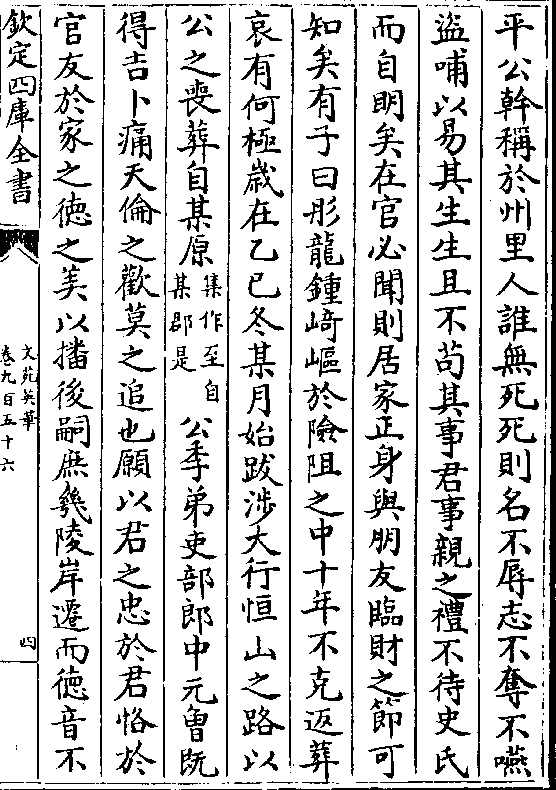 平公幹稱於州里人誰無死死則名不辱志不奪不嚥
盜哺以易其生生且不苟其事君事親之禮不待史氏
而自明矣在官必聞則居家正身與朋友臨財之節可
知矣有子曰彤龍鍾﨑嶇於險阻之中十年不克返葬
哀有何極歳在乙巳冬某月始跋涉大行恒山之路以
公之喪葬自某原集作至自某郡是公季弟吏部郎中元魯既
得吉卜痛天倫之歡莫之追也願以君之忠於君恪於
官友於家之徳之美以播後嗣庶㡬陵岸遷而徳音不
欽定四庫全書
文苑英華
卷九百五十六
四